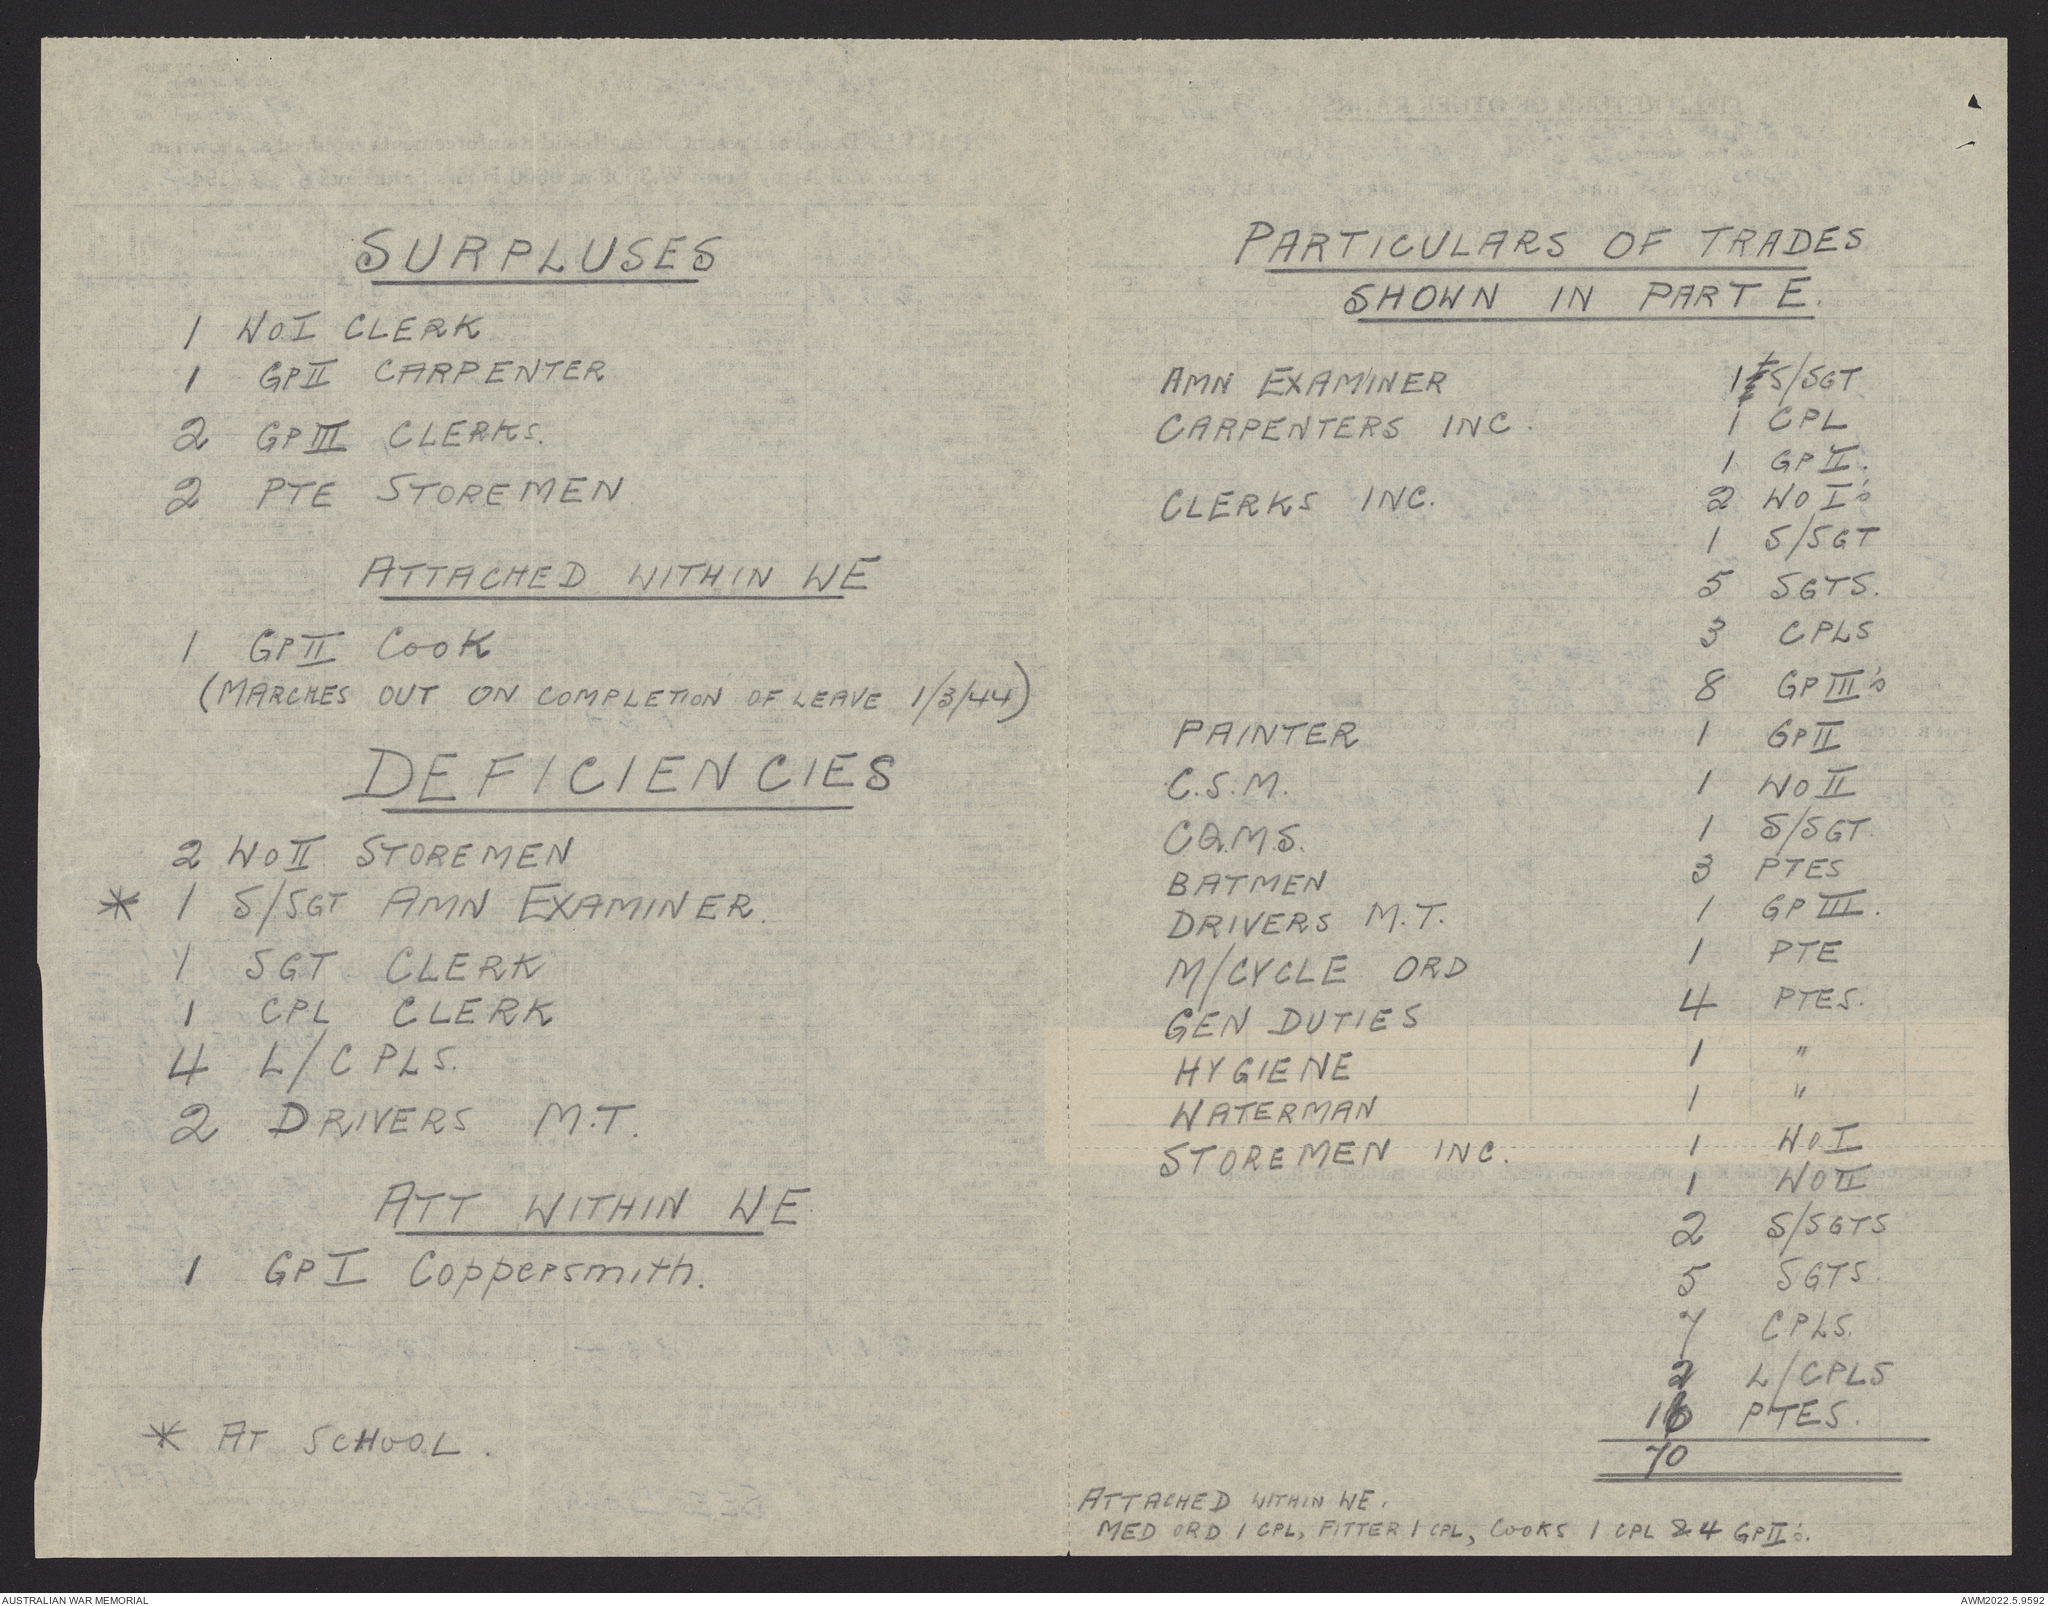 SURPLUSES
1 WO I CLERK
1 GP II CARPENTER
2 GP III CLERKS.
2 PTE STOREMEN
ATTACHED WITHIN WE
1 GP II COOK
(MARCHES OUT ON COMPLETION OF LEAVE 1/3/44)
DEFICIENCIES
2 WO II STOREMEN
* 1 S/SGT AMN EXAMINER.
1 SGT CLERK
1 CPL CLERK
4 L/CPLS.
2 DRIVERS M.T.
ATT WITHIN WE
1 GP I Coppersmith.
* AT SCHOOL.
PARTICULARS OF TRADES
SHOWN IN PART E.
AMN EXAMINER 1 S/SGT
CARPENTERS INC. 1 CPL
1 GP II.
CLERKS INC. 2 WO I's
1 S/SGT
5 SGTS.
3 CPLS
8 GP III's
PAINTER 1 GP II
C.S.M. 1 WO II
CQ.M.S. 1 S/SGT.
BATMEN 3 PTES
DRIVERS M.T. 1 GP III.
M/CYCLE ORD 1 PTE
GEN DUTIES 4 PTES.
HYGIENE 1 "
WATERMAN 1 "
STOREMEN INC. 1 WO I
1 WO II
2 S/SGTS
5 SGTS.
7 CPLS.
2 L/CPLS
16 PTES.
70
ATTACHED WITHIN WE.
MED ORD 1 CPL, FITTER 1 CPL, COOKS 1 CPL & 4 GP II's.
AUSTRALIAN WAR MEMORIAL
AWM2022.5.9592